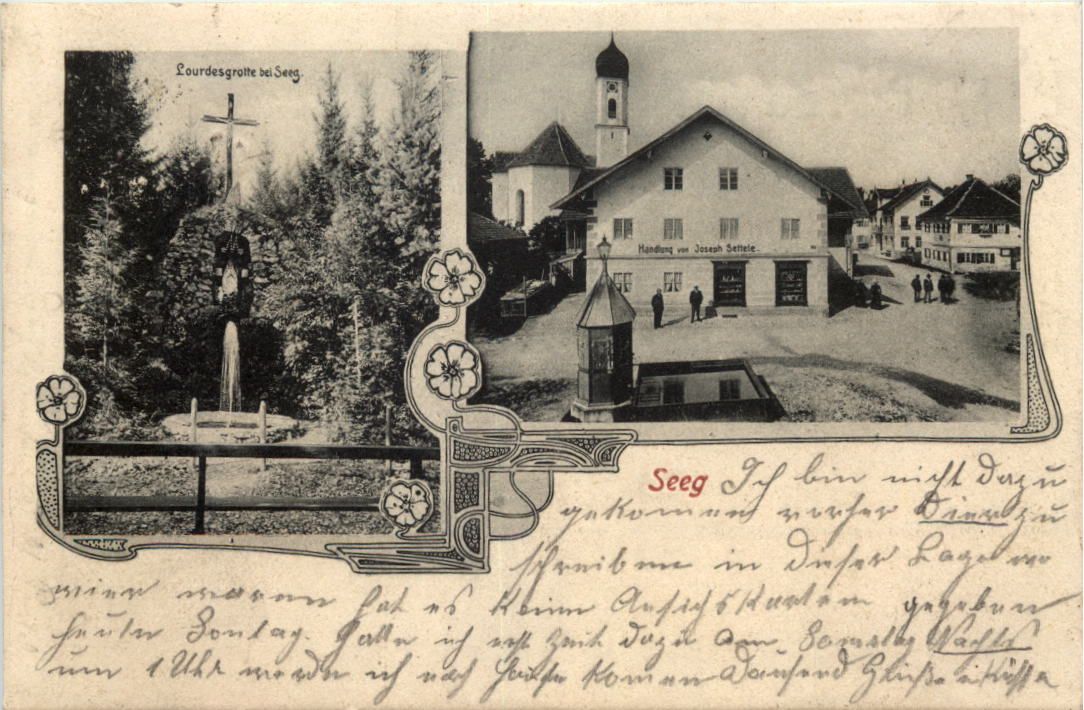 Lourdesgrotte bei Seeg.
Handlung von Joseph Settele.
Seeg
Ich bin nicht dazu
gekomen vorher Dier zu
schreiben in dieser Lage wo
wier waren hat es keine Ansichskarten gegeben
heute Sontag. Hatte ich erst Zeit dazu am Somstag Nachts
um 1 Uhr werde ich nach Hause komen Dausend Grüße & Küsse